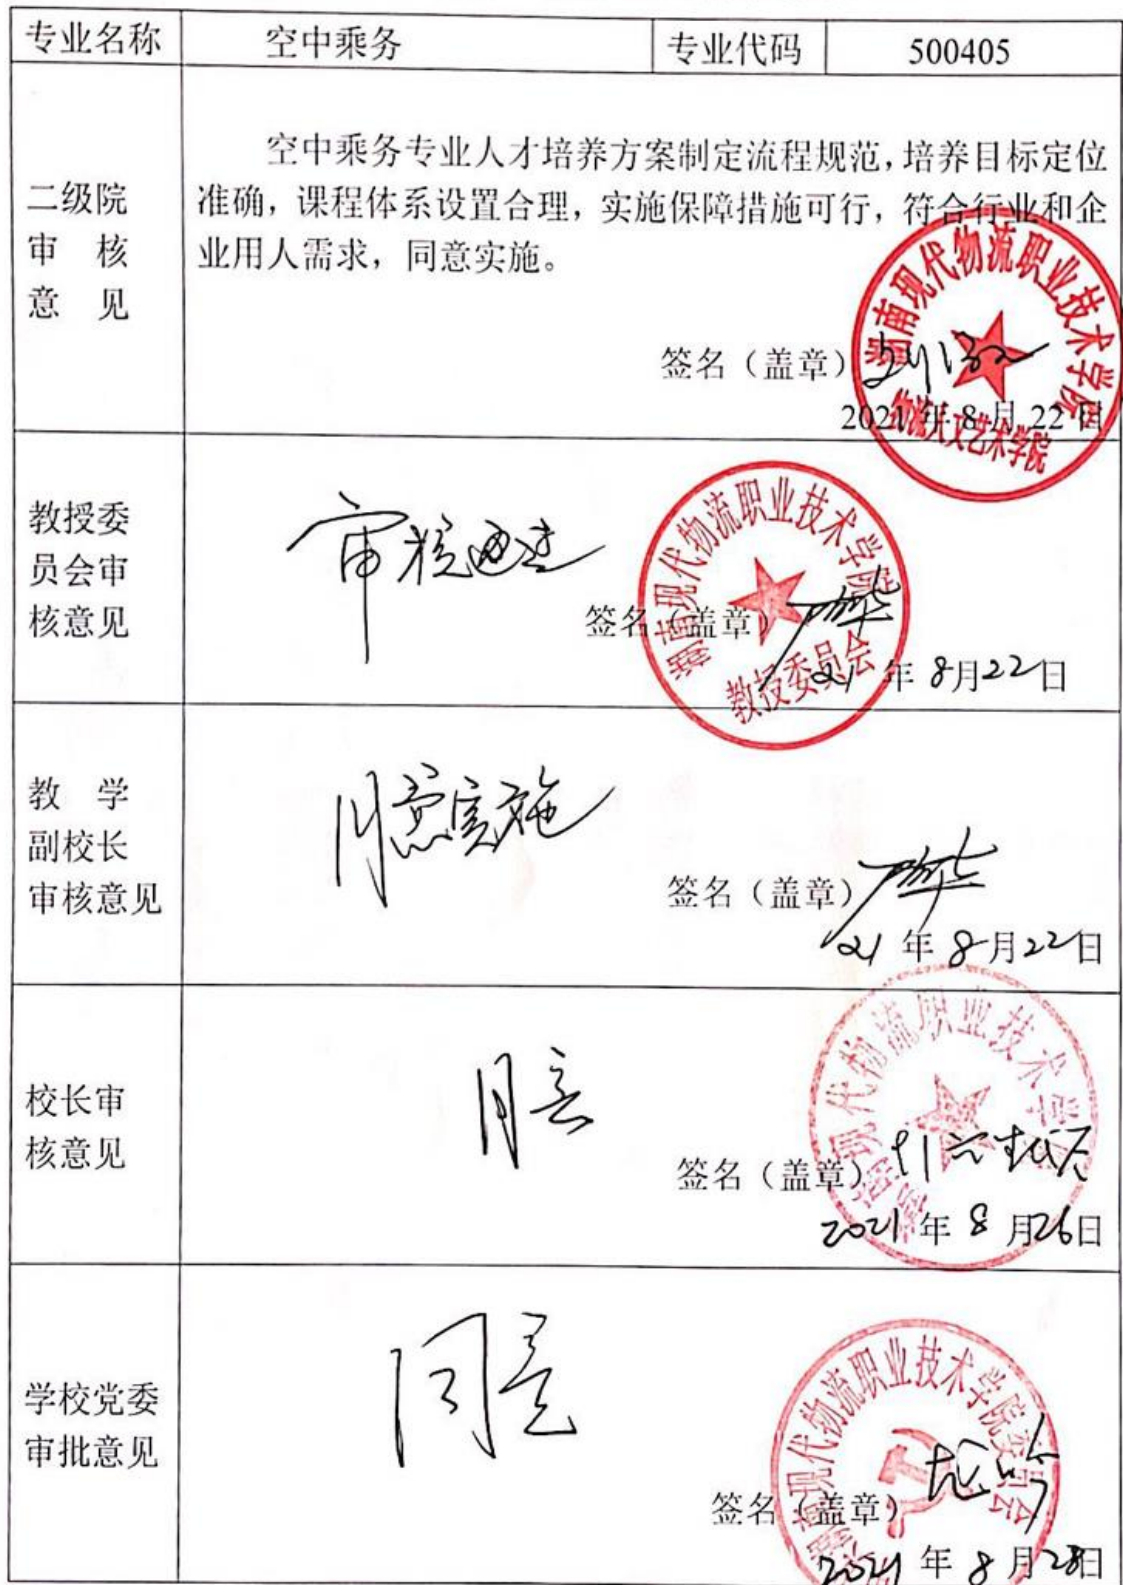 专业名称 空中乘务 专业代码 500405
二级院
审 核
意 见
空中乘务专业人才培养方案制定流程规范，培养目标定位
准确，课程体系设置合理，实施保障措施可行，符合行业和企
业用人需求，同意实施。
签名（盖章）
2021 年 8 月 22 日
湖南现代物流职业技术学院
物流人文艺术学院
教授委
员会审
核意见
审核通过
签名（盖章）
21 年 8月22日
湖南现代物流职业技术学院
教授委员会
教 学
副校长
审核意见
同意实施
签名（盖章）
21 年 8月22日
校长审
核意见
同意
签名（盖章）
2021 年 8 月26日
湖南现代物流职业技术学院
学校党委
审批意见
同意
签名（盖章）
2021 年 8 月28日
湖南现代物流职业技术学院委员会